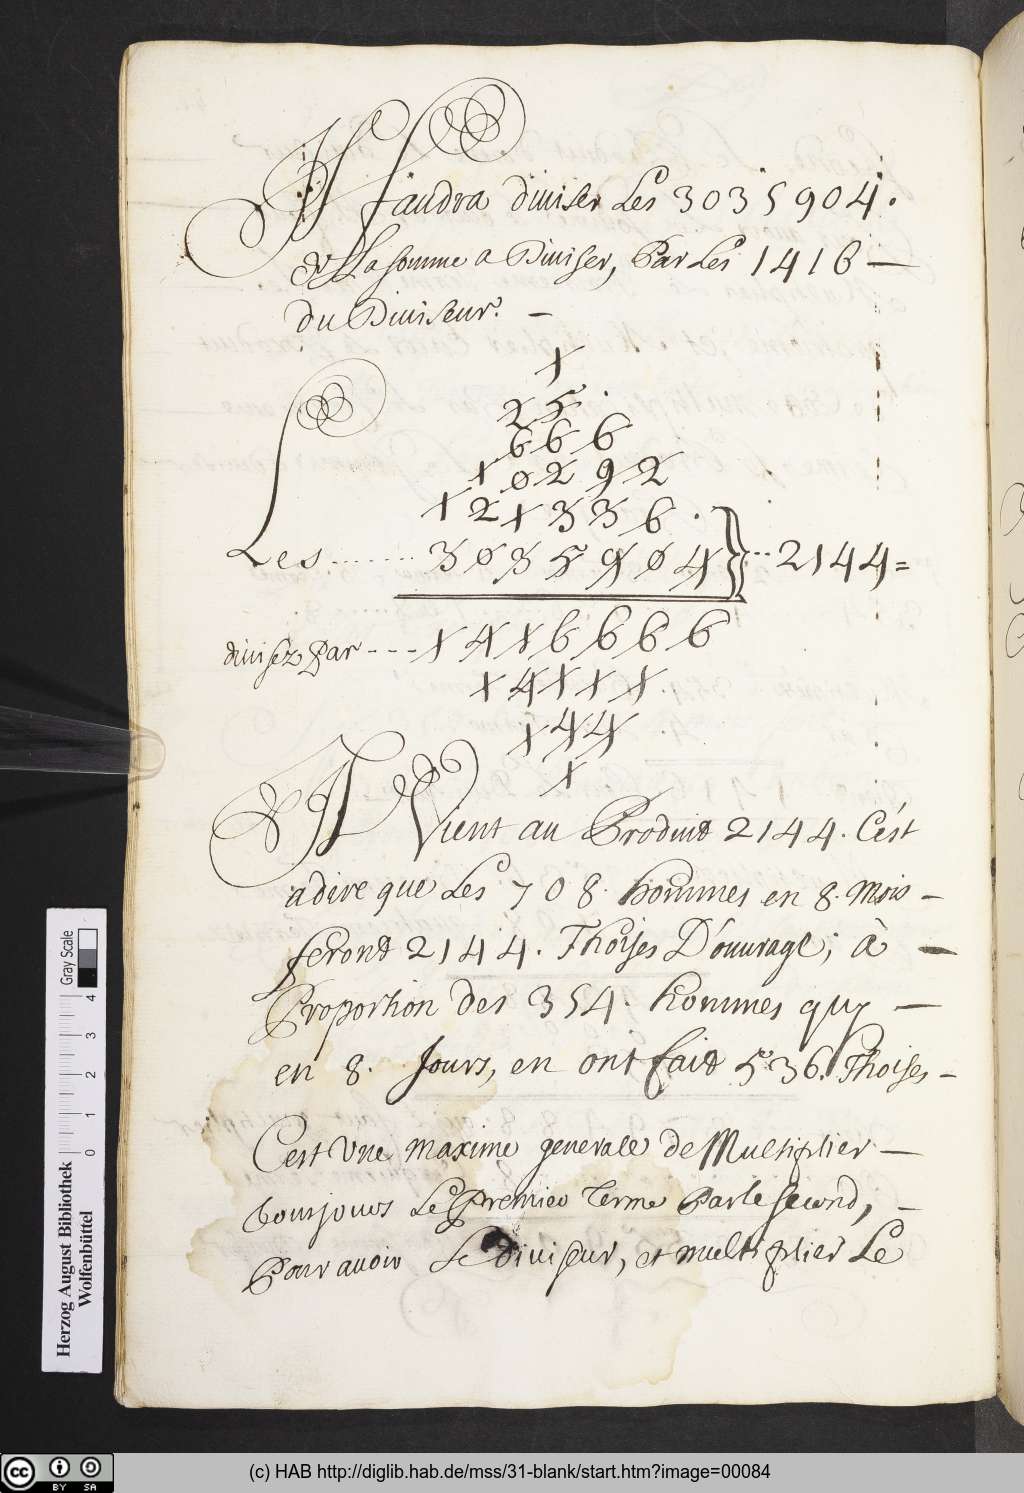 Il faudra diuiser Les 3035904.
de La somme a Diuiser, Par Les 1416 —
du Diuiseur. —
1
2 5
6 6 6
1 0 2 9 2
1 2 1 3 3 6 .
Les ....... 3 0 3 5 9 0 4 } ... 2144 =
diuisez Par --- 1 4 1 6 6 6 6
1 4 1 1 1
1 4 4
1
Il Vient au Produit 2144. C'est
a dire que Les 708. hommes en 8. Mois —
feront 2144. Thoises D'ouurage; à —
Proportion des 354. hommes quy —
en 8. Jours, en ont fait 536. Thoises —
C'est Vne maxime generale de Multiplier —
tousjours Le Premier terme Par le second, —
Pour auoir Le diuiseur, et multiplier Le
Gray Scale
0 1 2 3 4
Herzog August Bibliothek
Wolfenbüttel
(c) HAB http://diglib.hab.de/mss/31-blank/start.htm?image=00084
cc BY SA